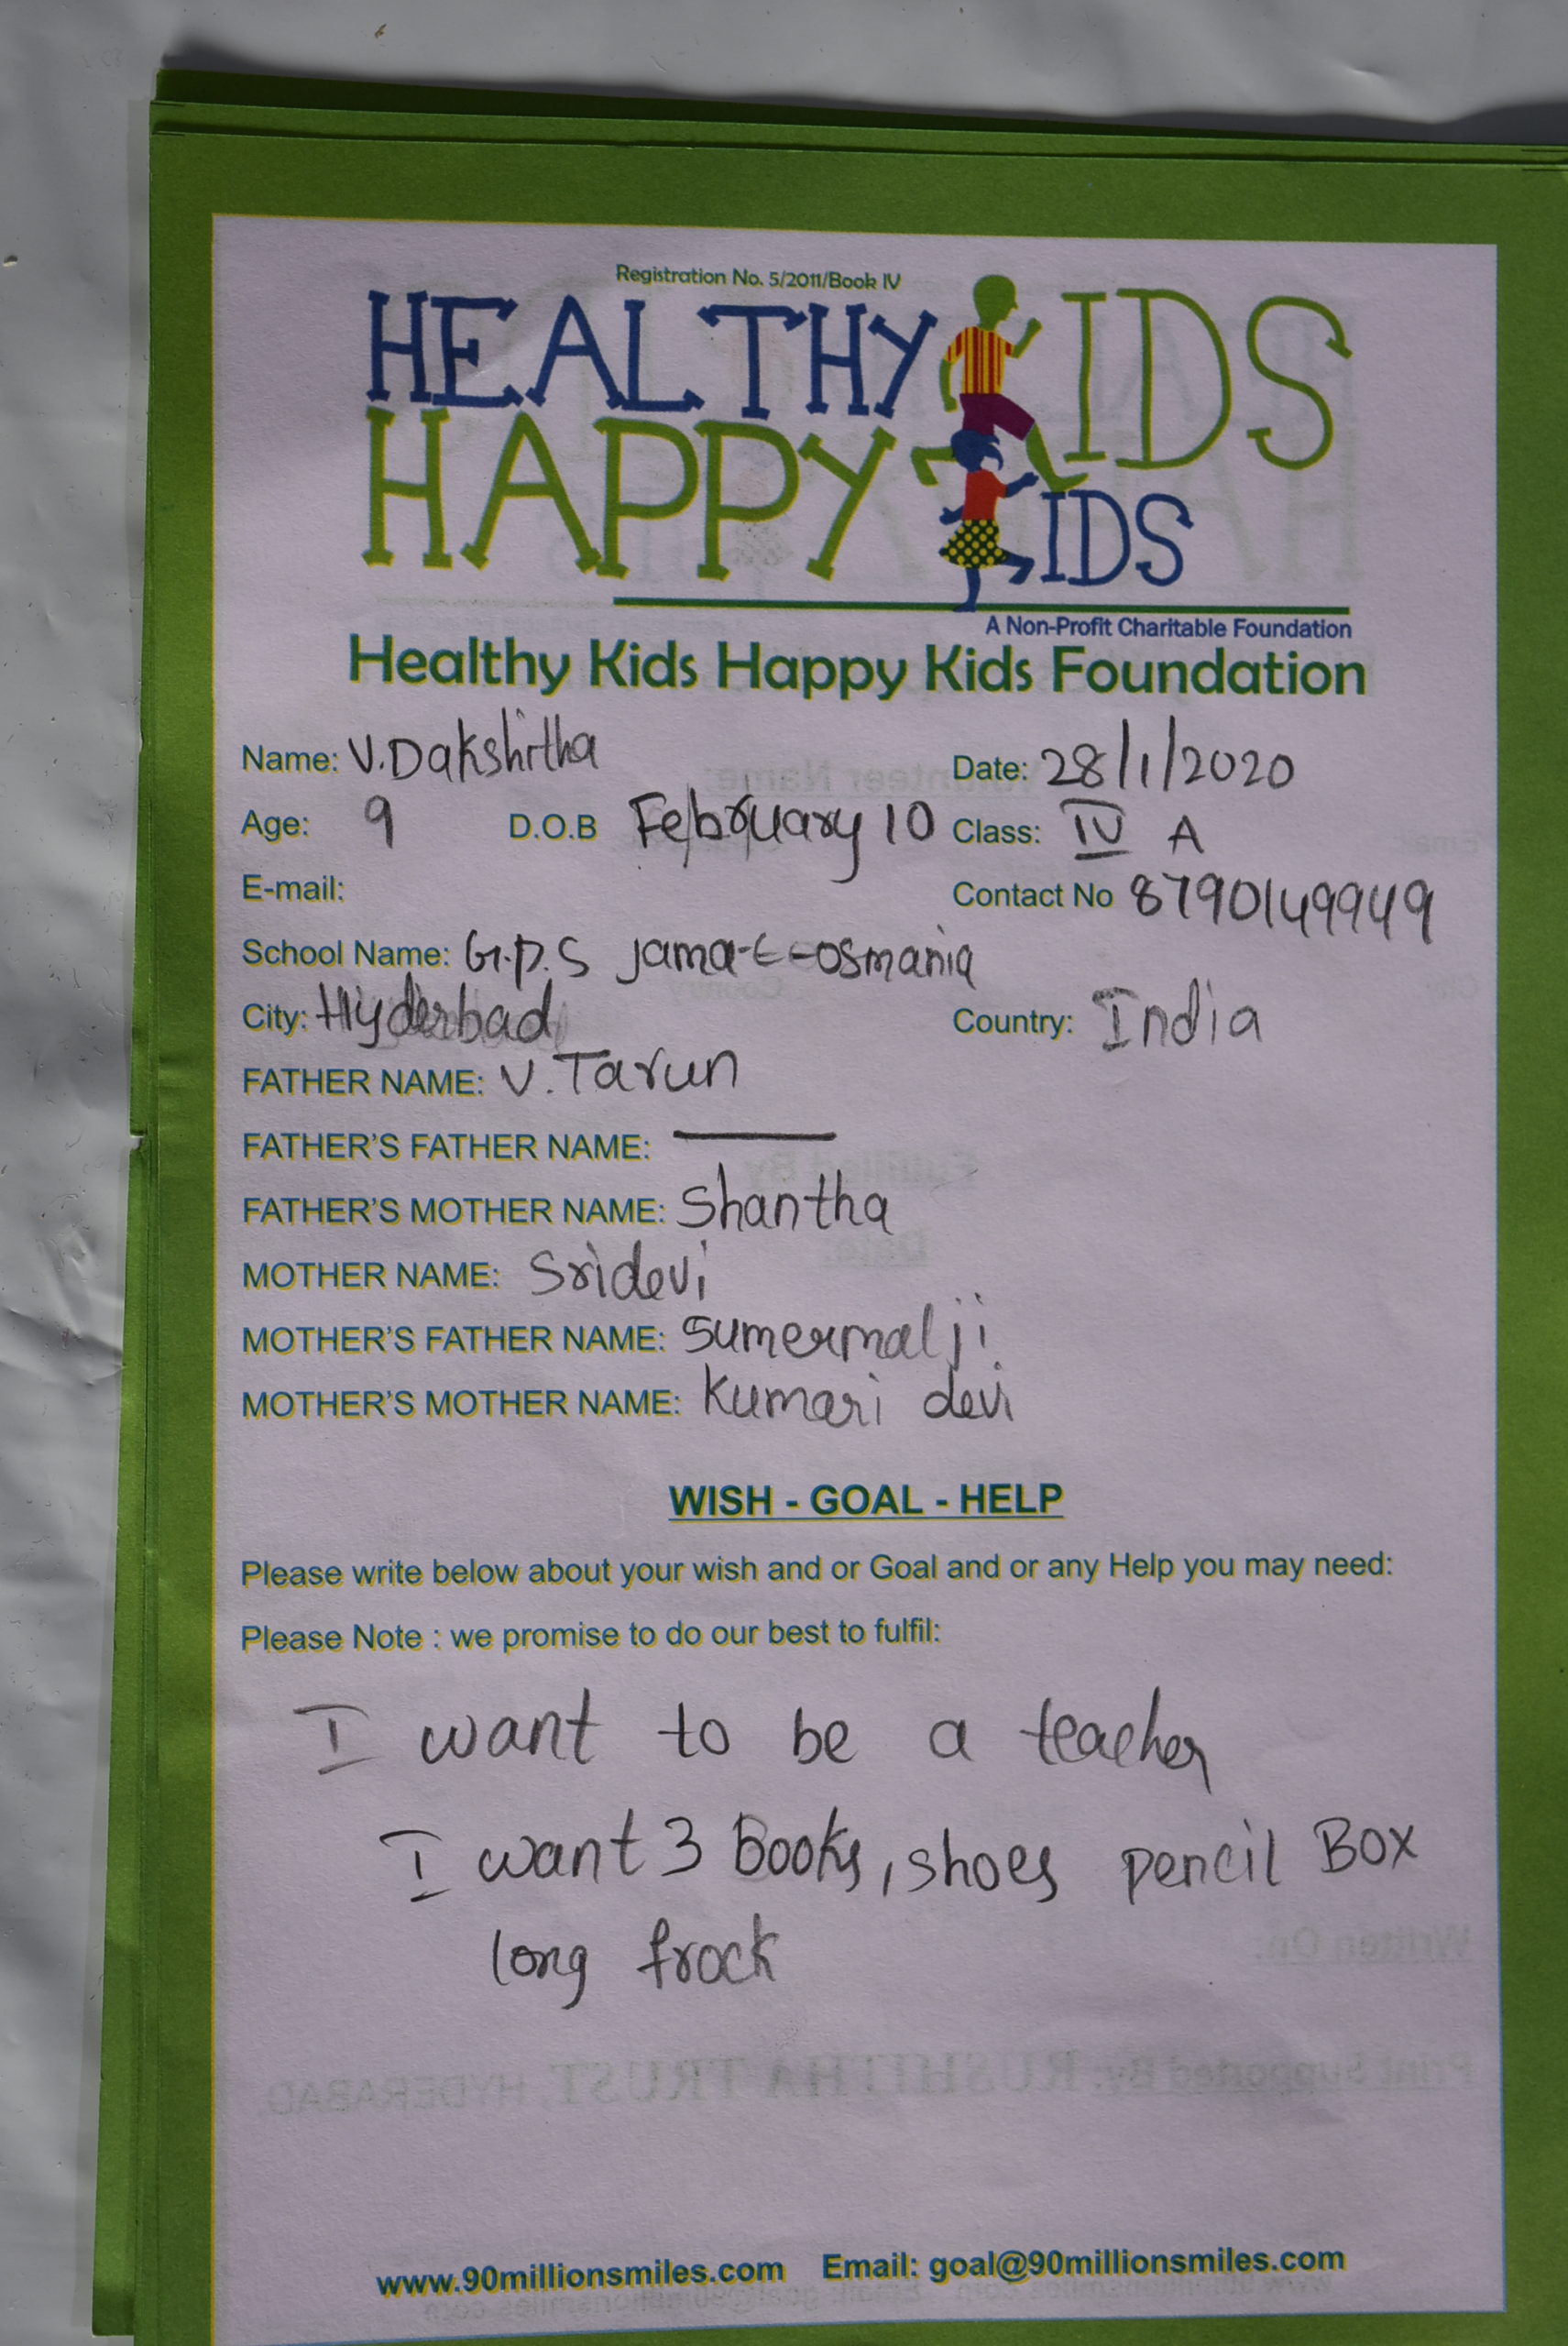 Registration No. 5/2011/Book IV
HEALTHY KIDS
HAPPY KIDS
A Non-Profit Charitable Foundation
Healthy Kids Happy Kids Foundation
Name: V.Dakshitha Date: 28/1/2020
Age: 9 D.O.B February 10 Class: IV A
E-mail: Contact No 8790149949
School Name: G.P.S Jama-E-osmania
City: Hyderbad Country: India
FATHER NAME: V.Tarun
FATHER'S FATHER NAME: —
FATHER'S MOTHER NAME: Shantha
MOTHER NAME: Sridevi
MOTHER'S FATHER NAME: Sumermal ji
MOTHER'S MOTHER NAME: Kumari devi
WISH - GOAL - HELP
Please write below about your wish and or Goal and or any Help you may need:
Please Note : we promise to do our best to fulfil:
I want to be a teacher
I want 3 Books, shoes pencil Box
long frock
Written On:
Print Supported By: RUSHITHA TRUST, HYDERABAD.
www.90millionsmiles.com Email: goal@90millionsmiles.com